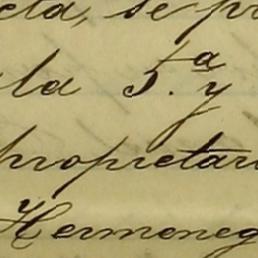 cta, se pr
la 5.ª y
propietari
Hermeneg